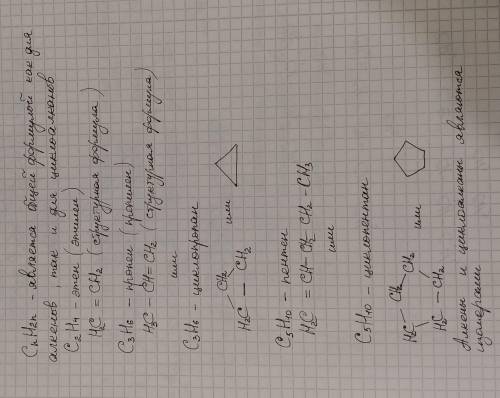 CnH2n - является общей формулой как для
алкенов, так и для циклоалканов
C2H4 - этен (этилен)
H2C = CH2 (структурная формула)
C3H6 - пропен (пропилен)
H3C - CH = CH2 (структурная формула)
или
C3H6 - циклопропан
H2C CH2 CH2 или
C5H10 - пентен
H2C = CH - CH2 - CH2 - CH3
или
C5H10 - циклопентан
H2C CH2 CH2 H2C CH2 или
Алкены и циклоалканы являются
изомерами